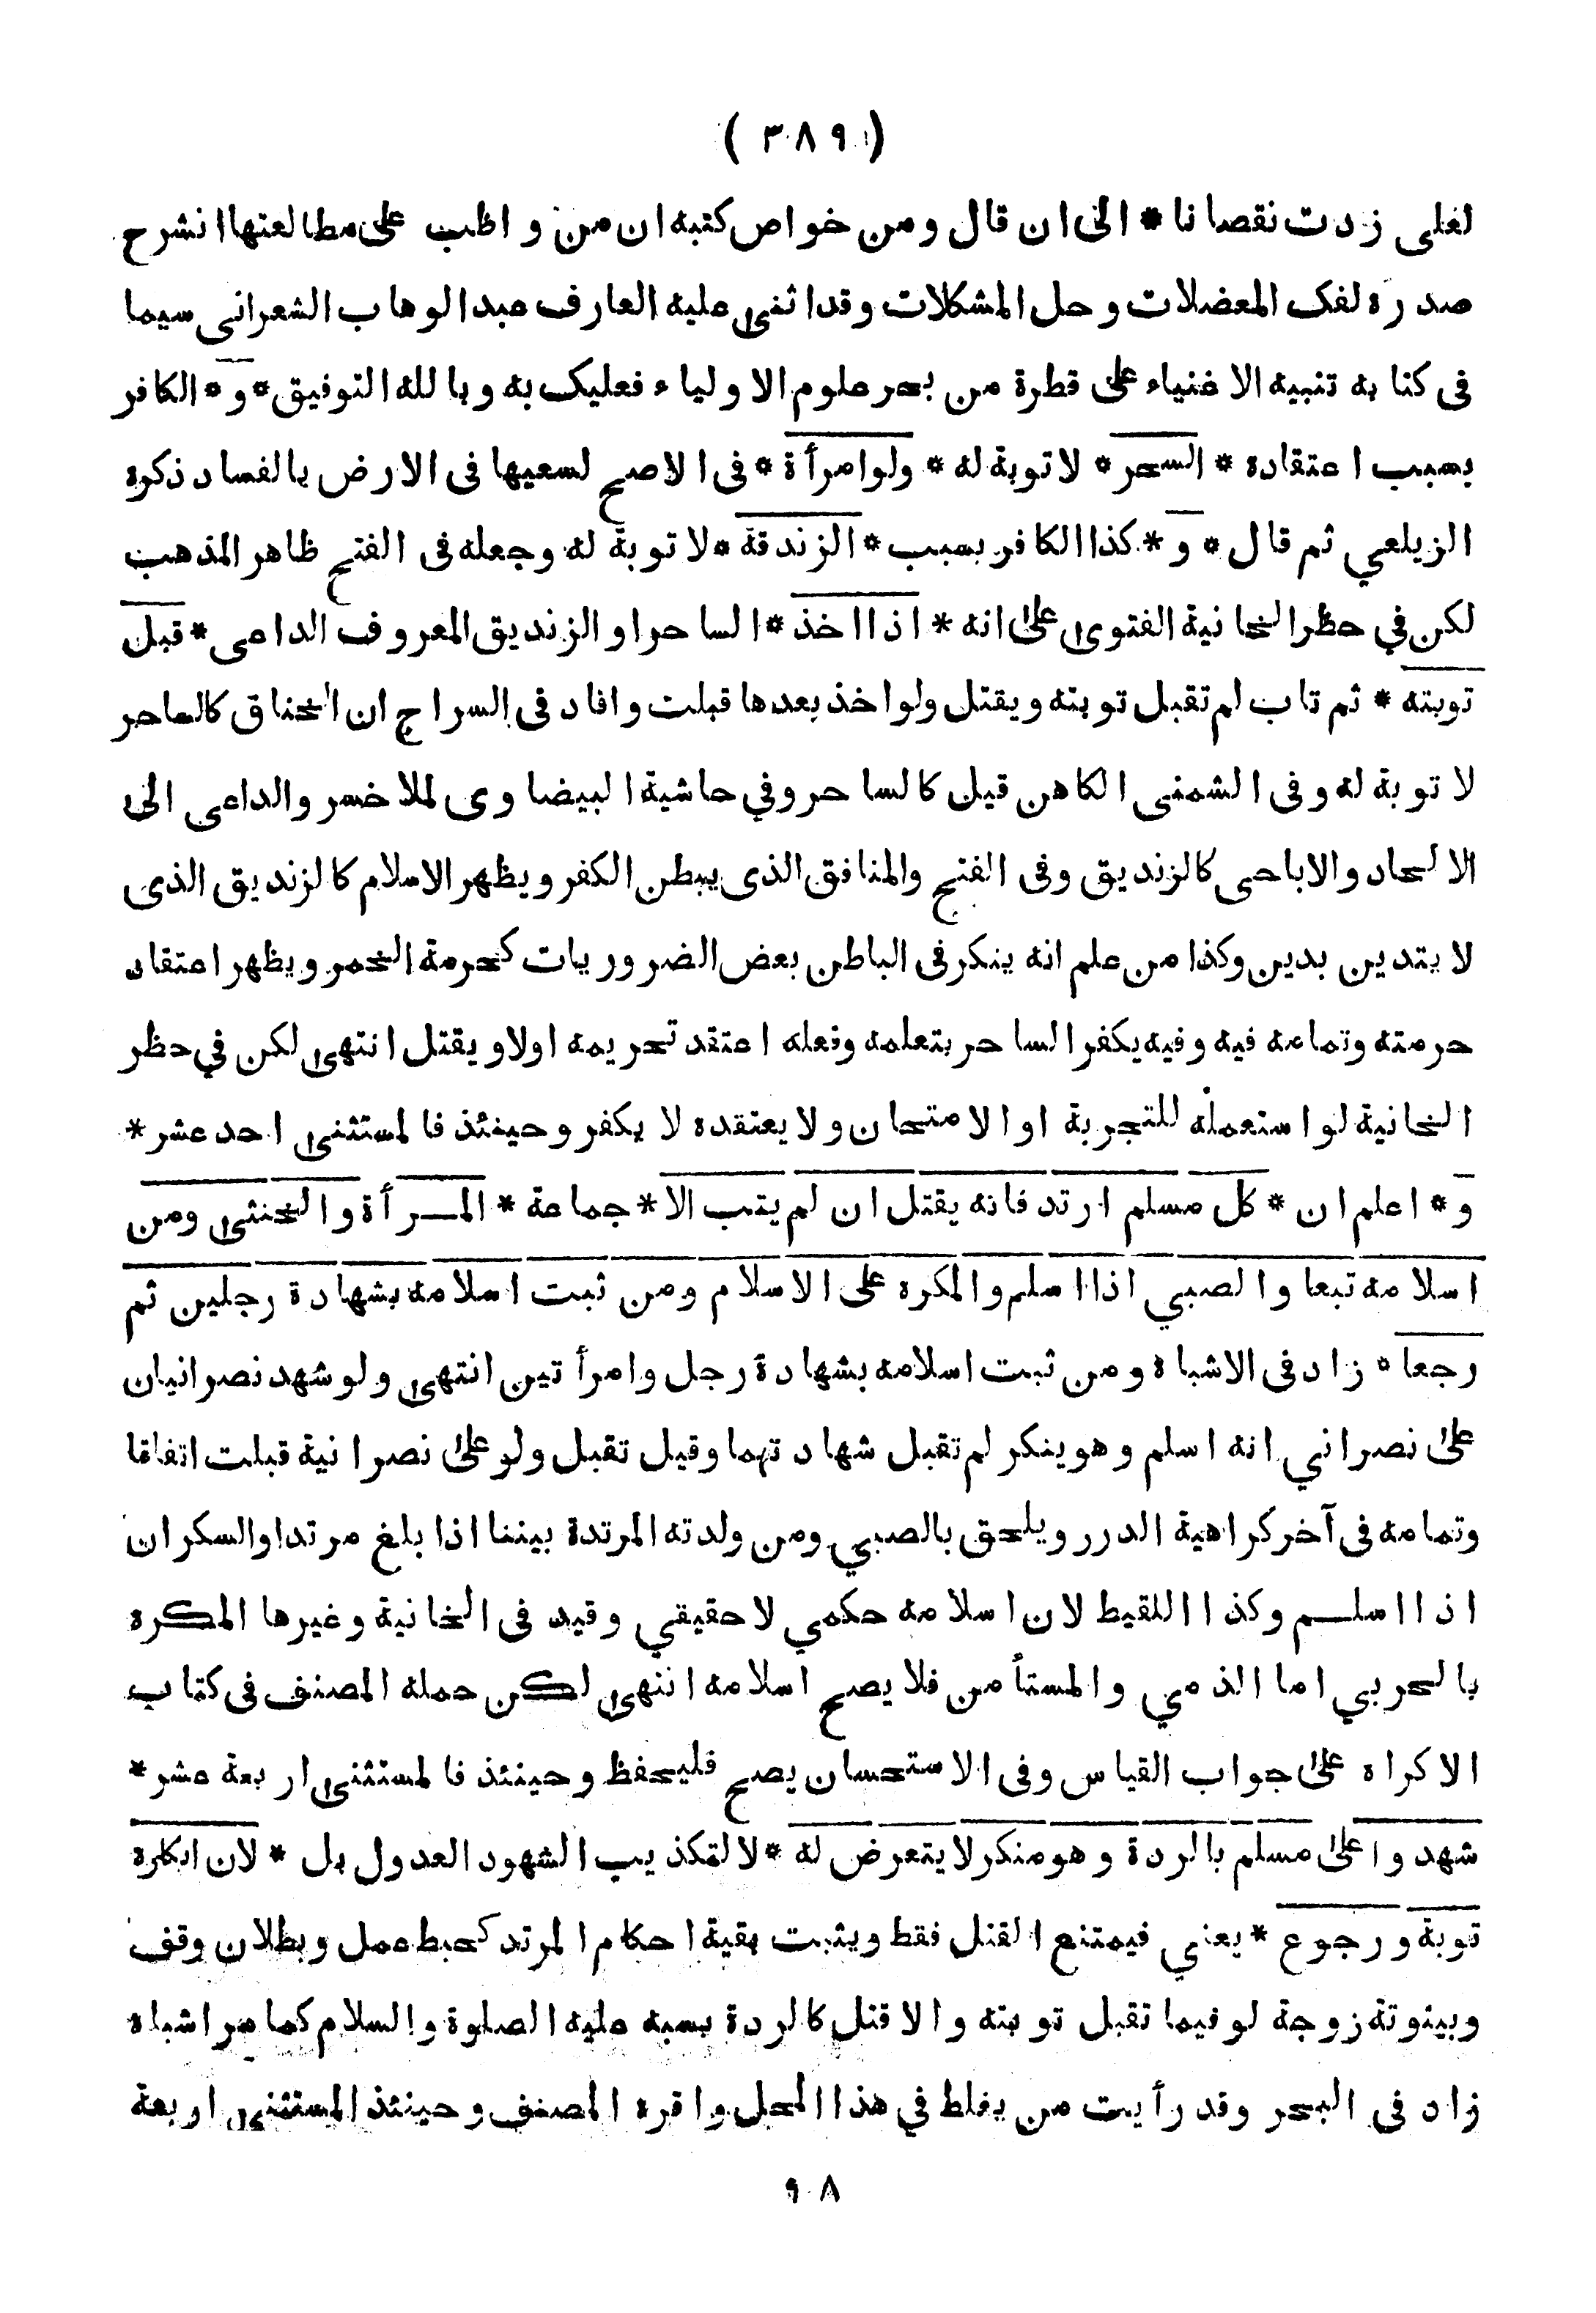 ( ٣٨٩ )
لغلى زدت نقصانا * الى ان قال ومن خواص كتبه ان من واظب على مطالعتها انشرح
صدره لفك المعضلات وحل المشكلات وقد اثنى عليه العارف عبد الوهاب الشعرانى سيما
فى كتابه تنبيه الاغنياء على قطرة من بحر علوم الاولياء فعليك به وبالله التوفيق * و * الكافر
بسبب اعتقاده * السحر * لا توبة له * ولو امرأة * فى الاصح لسعيها فى الارض بالفساد ذكره
الزيلعي ثم قال * و * كذا الكافر بسبب * الزندقة * لا توبة له وجعله فى الفتح ظاهر المذهب
لكن في حظر الخانية الفتوى على انه * اذا اخذ * الساحر او الزنديق المعروف الداعى * قبل
توبته * ثم تاب لم تقبل توبته ويقتل ولو اخذ بعدها قبلت وافاد فى السراج ان الخناق كالساحر
لا توبة له وفى الشمنى الكاهن قيل كالساحر وفي حاشية البيضاوى لملا خسر والداعى الى
الالحاد والاباحى كالزنديق وفى الفتح والمنافق الذى يبطن الكفر ويظهر الاسلام كالزنديق الذى
لا يتدين بدين وكذا من علم انه ينكر فى الباطن بعض الضروريات كحرمة الخمر ويظهر اعتقاد
حرمته وتمامه فيه وفيه يكفر الساحر بتعلمه وفعله اعتقد تحريمه اولا ويقتل انتهى لكن في حظر
الخانية لو استعمله للتجربة او الامتحان ولا يعتقده لا يكفر وحينئذ فالمستثنى احد عشر *
و * اعلم ان * كل مسلم ارتد فانه يقتل ان لم يتب الا * جماعة * المـرأة والخنثى ومن
اسلامه تبعا والصبي اذا اسلم والمكره على الاسلام ومن ثبت اسلامه بشهادة رجلين ثم
رجعا * زاد فى الاشباه ومن ثبت اسلامه بشهادة رجل وامرأتين انتهى ولو شهد نصرانيان
على نصراني انه اسلم وهو ينكر لم تقبل شهادتهما وقيل تقبل ولو على نصرانية قبلت اتفاقا
وتمامه فى آخر كراهية الدرر ويلحق بالصبي ومن ولدته المرتدة بيننا اذا بلغ مرتدا والسكران
اذا اسلـم وكذا اللقيط لان اسلامه حكمي لا حقيقي وقيد فى الخانية وغيرها المكره
بالحربي اما الذمي والمستأمن فلا يصح اسلامه انتهى لكن حمله المصنف فى كتاب
الاكراه على جواب القياس وفى الاستحسان يصح فليحفظ وحينئذ فالمستثنى اربعة عشر *
شهدوا على مسلم بالردة وهو منكر لا يتعرض له * لا لتكذيب الشهود العدول بل * لان انكاره
توبة ورجوع * يعني فيمتنع القتل فقط ويثبت بقية احكام المرتد كحبط عمل وبطلان وقف
وبينونة زوجة لو فيما تقبل توبته والا قتل كالردة بسبه عليه الصلوة والسلام كما مر اشباه
زاد فى البحر وقد رأيت من يغلط في هذا المحل واقره المصنف وحينئذ المستثنى اربعة
٩٨